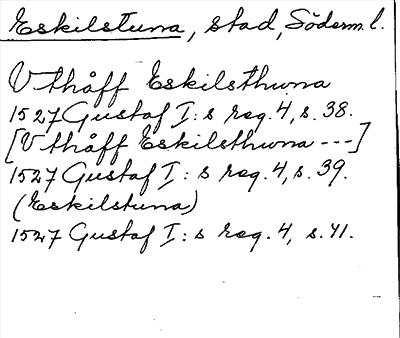 Eskilstuna, stad, Söderm. l.
Vthåff Eskilsthwna
1527 Gustaf I:s reg. 4, s. 38.
[Vthåff Eskilsthwna ---]
1527 Gustaf I:s reg. 4, s. 39.
(Eskilstuna)
1527 Gustaf I:s reg. 4, s. 41.